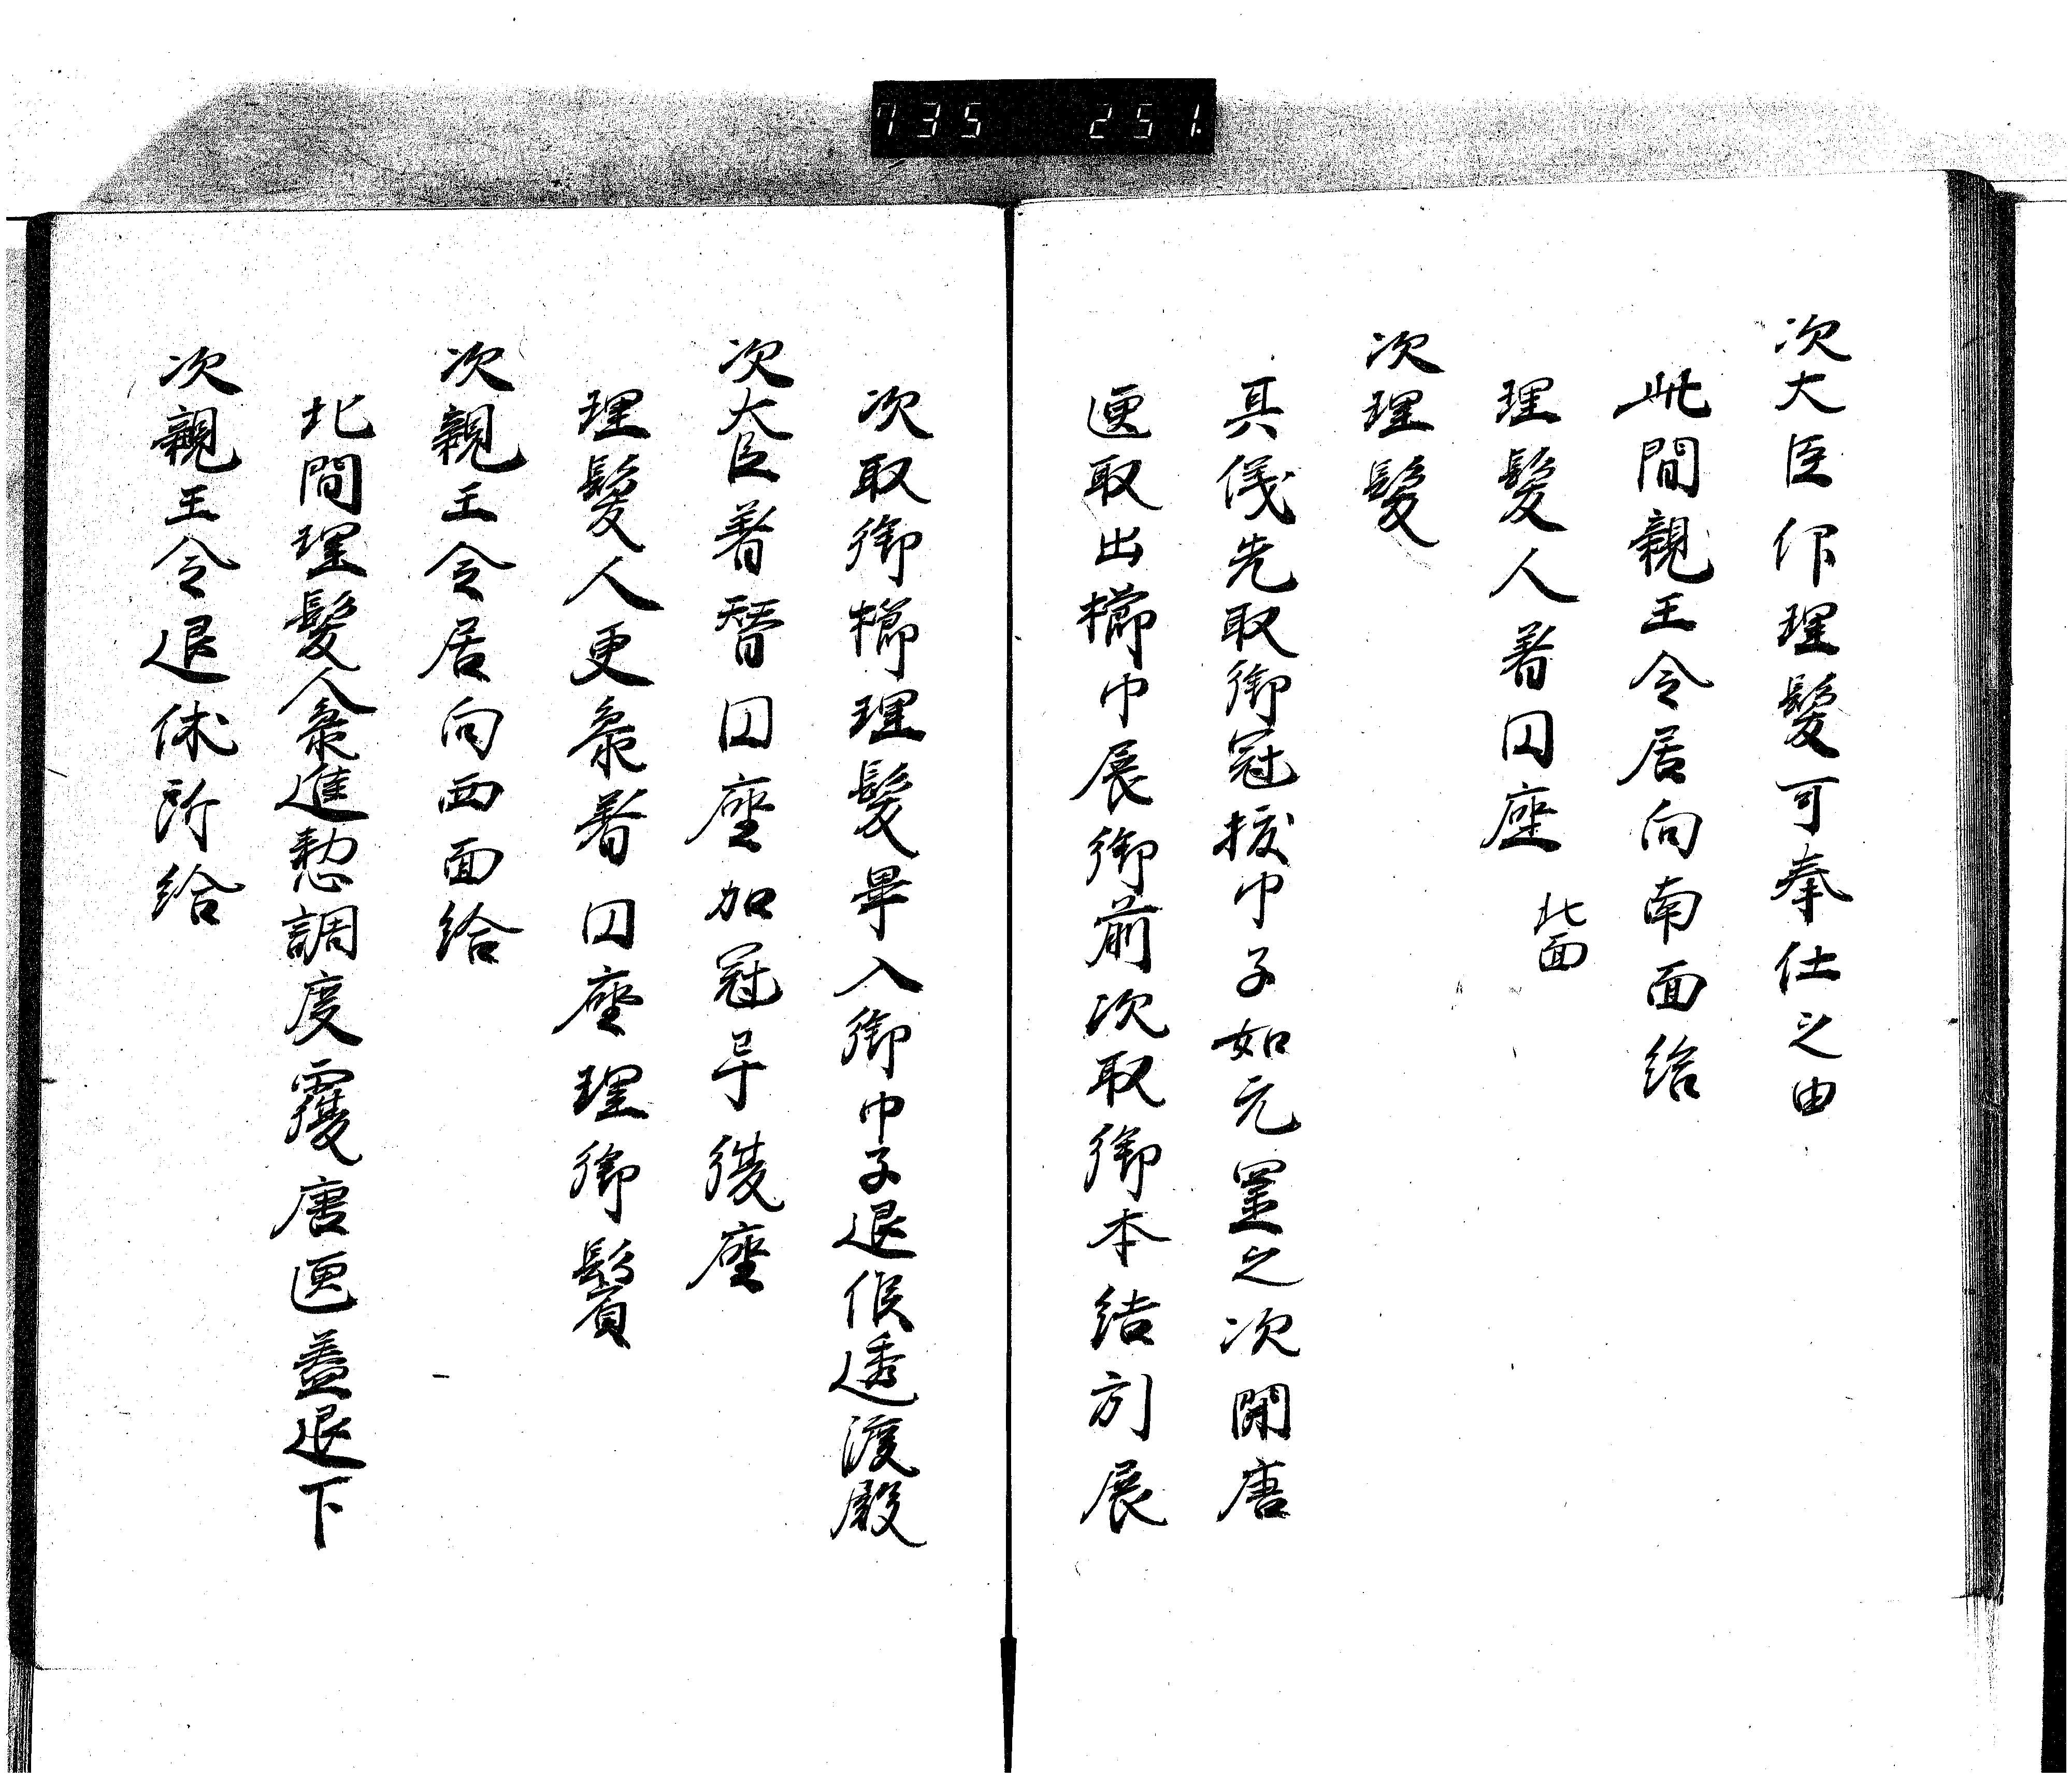 735 251
次大臣仰理髪可奉仕之由
此間親王令居向南面給
理髪人着円座 北面
次理髪
其儀先取御冠抜巾子如元置之次開唐
匣取出櫛巾展御前次取御本結別展
次取御櫛理髪畢入御巾子退候透渡殿
次大臣着替円座加冠畢復座
理髪人更参着円座理御鬢
次親王令居向西面給
此間理髪人参進懃調度覆唐匣蓋退下
次親王令退休所給